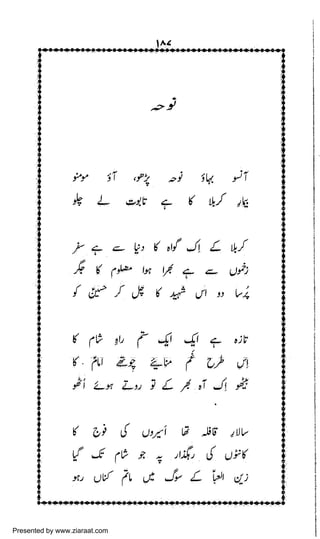 ۱۸۷
نوحہ
آنسو بہاؤ نوحہ پڑھو، آؤ مومنو
بیمارِ کربلا کا ہے تابوت لے چلو
کربلا کے اِک گواہ کا دنیا سے ہے سفر
زخموں سے ہے بھرا ہوا مظلوم کا جگر
پُرسا دو اس شہید کا چل کر حسینؑ کو
تازہ ہے ایک ایک ستم راہِ شام کا
اِس طرح غم منایئے چوتھے امامؑ کا
بیٹھو اِک آہ بھر کے تو روتے ہوئے اُٹھو
سالارِ قافلہ تھا اَسیروں کی فوج کا
کانٹوں کی رہگذار پہ جو شام تک گیا
زین العباؑ کے سوگ میں ماتم کناں رہو
Presented by www.ziaraat.com